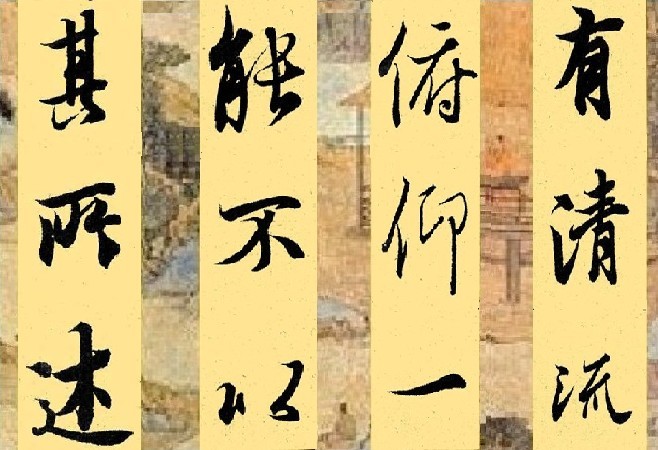 有清流
俯仰一
能不以
其所述